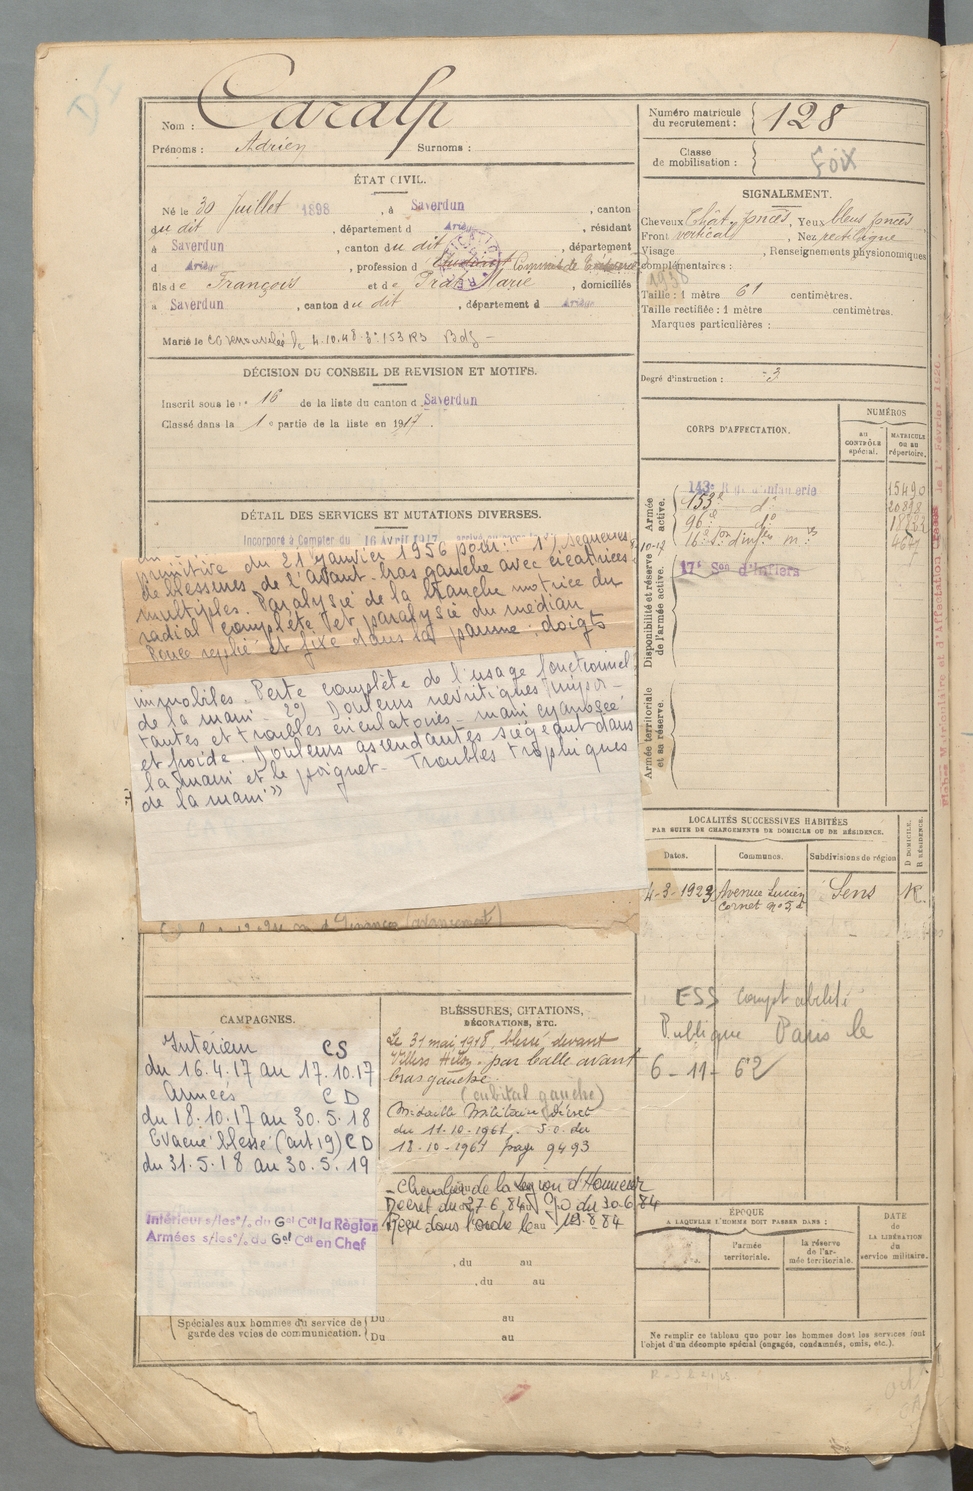 Nom : Caralp
Prénoms : Adrien Surnoms :
ÉTAT CIVIL.
Né le 30 Juillet 1898, à Saverdun, canton
du dit, département d Ariège, résidant
à Saverdun, canton du dit, département
d Ariège, profession d Etudiant Commis de
fils de François et de Prat Marie, domiciliés
à Saverdun, canton du dit, département d Ariège
Marié le
4.10.48
DÉCISION DU CONSEIL DE REVISION ET MOTIFS.
Inscrit sous le n° 16 de la liste du canton d Saverdun
Classé dans la 1e partie de la liste en 1917.
DÉTAIL DES SERVICES ET MUTATIONS DIVERSES.
Incorporé à Compter du 16 Avril 1917
primitive du 21 janvier 1956 pour : 1°) séquelles
de blessures de l'avant-bras gauche avec cicatrices
multiples. Paralysie de la branche motrice du
radial complète et paralysie du médian
Pouce replié et fixé dans la paume ; doigts
immobiles. Perte complète de l'usage fonctionnel
de la main - 2°) Douleurs névritiques impor-
tantes et troubles circulatoires - main cyanosée
et froide. Douleurs ascendantes siégeant dans
la main et le poignet - Troubles trophiques
de la main"
CAMPAGNES.
Intérieur CS
du 16.4.17 au 17.10.17
Armées CD
du 18.10.17 au 30.5.18
Evacué blessé (art 19) CD
du 31.5.18 au 30.5.19
Intérieur s/les °/. du Gal Cdt la Région
Armées s/les °/. du Gal Cdt en Chef
Spéciales aux hommes du service de
garde des voies de communication.
BLESSURES, CITATIONS,
DÉCORATIONS, ETC.
Le 31 mai 1918, blessé devant
Villers Hélon par balle avant
bras gauche.
(cubital gauche)
Médaille Militaire Décret
du 11-10-1961. J.O. du
18-10-1961 page 9493
- Chevalier de la Légion d'Honneur
Décret du 27.6.84 JO du 30.6.84
Reçu dans l'ordre le 19.8.84
, du au
, du au
Du au
Du au
Numéro matricule
du recrutement : 128
Classe
de mobilisation : Foix
SIGNALEMENT.
Cheveux Chât. foncés, Yeux bleus foncés
Front vertical, Nez rectiligne
Visage , Renseignements physionomiques
complémentaires :
1938
Taille : 1 mètre 61 centimètres.
Taille rectifiée : 1 mètre centimètres.
Marques particulières :
Degré d'instruction : 3
CORPS D'AFFECTATION.
NUMÉROS
AU CONTRÔLE spécial.
MATRICULE ou au répertoire.
Armée active.
143e R. d'Infanterie 15490
153e do 20898
96e do
16e Son d'infers ms
Disponibilité et réserve de l'armée active.
17e Son d'Infiers
Armée territoriale et sa réserve.
LOCALITÉS SUCCESSIVES HABITÉES
PAR SUITE DE CHANGEMENTS DE DOMICILE OU DE RÉSIDENCE.
D DOMICILE.
R RÉSIDENCE.
Dates. Communes. Subdivisions de région
4-3-1923 Avenue Lucien Sens R.
Cornet n° 5
ESS comptabilité
Publique Paris le
6-11-62
ÉPOQUE
A LAQUELLE L'HOMME DOIT PASSER DANS :
l'armée territoriale.
la réserve de l'armée territoriale.
DATE
de
LA LIBÉRATION
du
service militaire.
Ne remplir ce tableau que pour les hommes dont les services font
l'objet d'un décompte spécial (engagés, condamnés, omis, etc.).